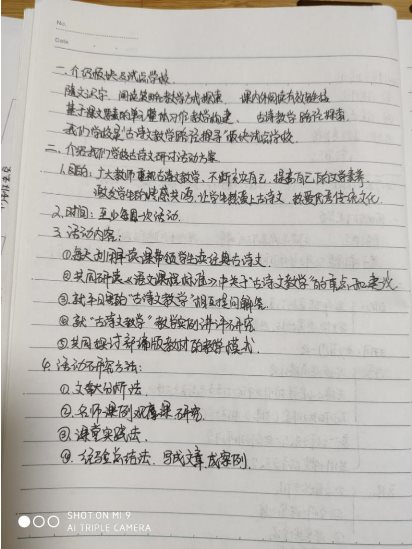 No.
Date
一.介绍板块及试点学校
随文识字 阅读策略教学方式探索、 课内外阅读有效链接
基于课文要素的单元整体习作教学构建、 古诗教学路径探索
我们学校是"古诗文教学路径指导"板块试点学校.
二.介绍我们学校古诗文研讨活动方案
1.目的: 广大教师重视古诗教学、不断充实自己,提高自己的文学素养.
激发学生的情感共鸣,让学生热爱上古诗文、热爱民族传统文化.
2.时间:至少每周一次活动.
3.活动内容:
①每天利用早读课带领学生读经典古诗文.
②共同研读《语文课程标准》中关于"古诗文教学"的重点和要求
③就平日里的"古诗文教学"相互提问解答.
④就"古诗文教学"教学案例讲评研究
⑤共同探讨新编版教材的教学模式.
4.活动研究方法:
①.文献分析法.
②.名师课例观摩课研究
③.课堂实践法.
④.经验总结法、写成文章或案例.
SHOT ON MI 9
AI TRIPLE CAMERA